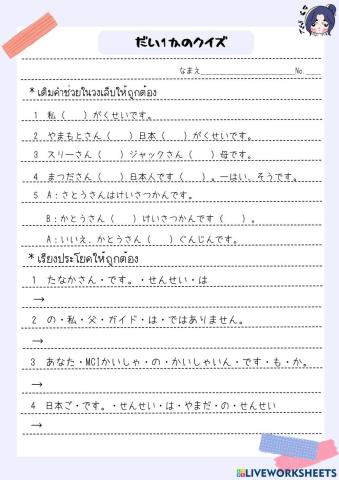 だい1かのクイズ
なまえ____________________No.____
* เติมคำช่วยในวงเล็บให้ถูกต้อง
1 私（　）がくせいです。
2 やまもとさん（　）日本（　）がくせいです。
3 スリーさん（　）ジャックさん（　）母です。
4 まつださん（　）日本人です（　）。ーはい、そうです。
5 A：さとうさんはけいさつかんです。
B：かとうさん（　）けいさつかんです（　）。
A：いいえ、かとうさん（　）ぐんじんです。
* เรียงประโยคให้ถูกต้อง
1 たなかさん・です。・せんせい・は
→
2 の・私・父・ガイド・は・ではありません。
→
3 あなた・MCIかいしゃ・の・かいしゃいん・です・も・か。
→
4 日本ご・です。・せんせい・は・やまだ・の・せんせい
→
LIVEWORKSHEETS